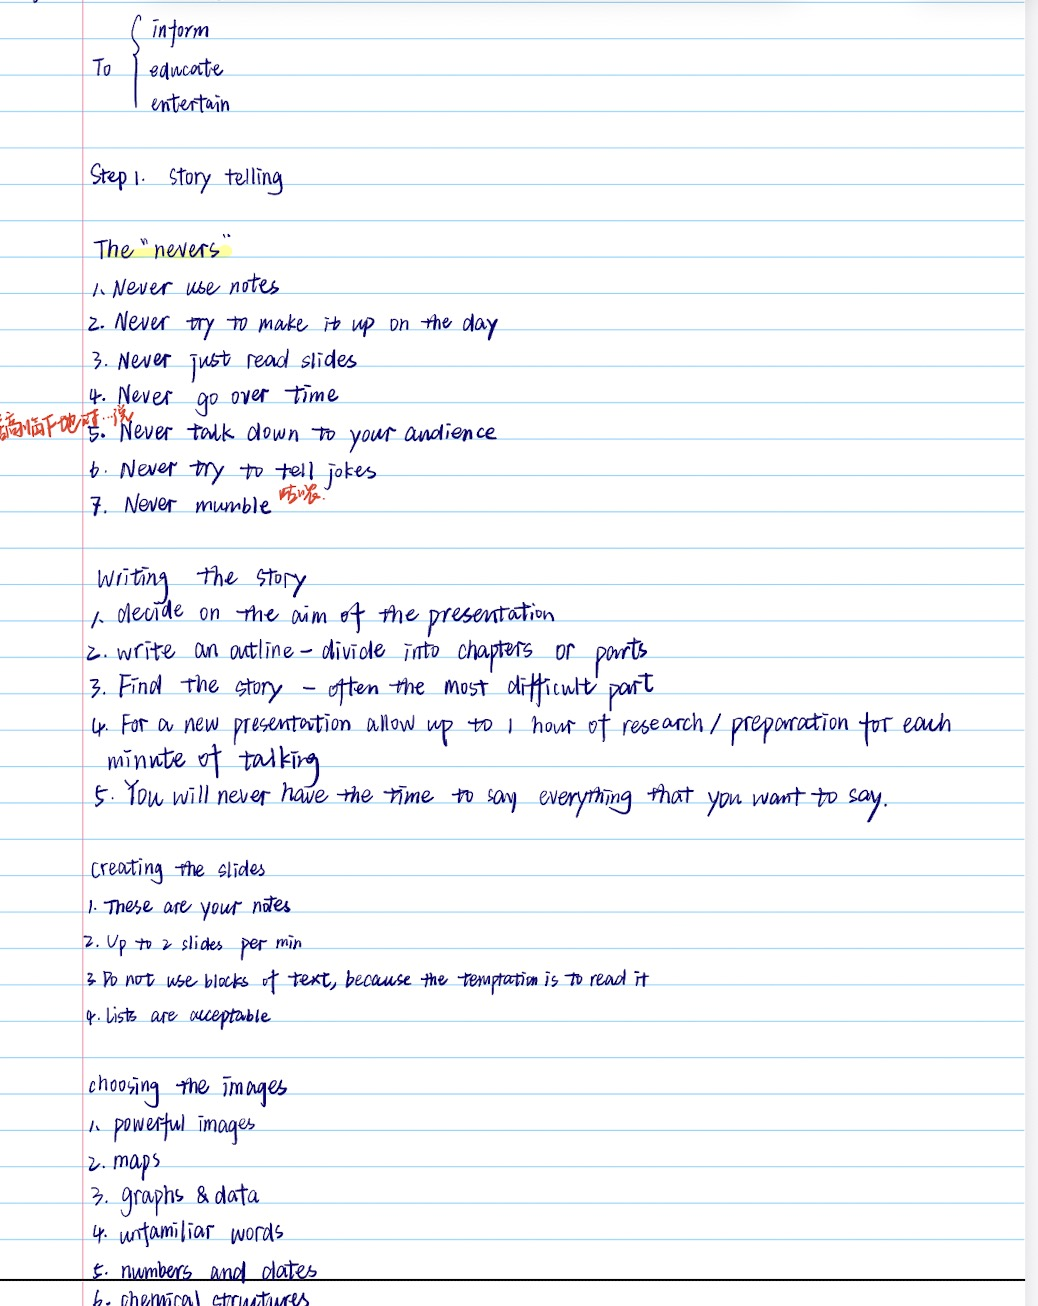 inform
To educate
entertain
Step 1. Story telling
The "nevers"
1. Never use notes
2. Never try to make it up on the day
3. Never just read slides
4. Never go over time
高临下地对…说
5. Never talk down to your audience
6. Never try to tell jokes
7. Never mumble 咕哝.
Writing the story
1. decide on the aim of the presentation
2. write an outline – divide into chapters or parts
3. Find the story – often the most difficult part
4. For a new presentation allow up to 1 hour of research / preparation for each
minute of talking
5. You will never have the time to say everything that you want to say.
creating the slides
1. These are your notes
2. Up to 2 slides per min
3 Do not use blocks of text, because the temptation is to read it
4. Lists are acceptable
choosing the images
1. powerful images
2. maps
3. graphs & data
4. unfamiliar words
5. numbers and dates
6. chemical structures